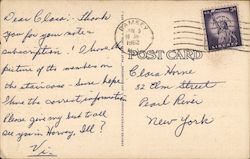 Dear Clara: Thank
you for your note &
subscription. I have the
picture of the members on
the staircase - Sure hope
I have the correct information
Please give my best to all
See you in Harvey, Ill?
Vi
RAMSEY
JAN 3
1962
POST CARD
LIBERTY
Clara Horne
32 Elm Street
Pearl River
New York